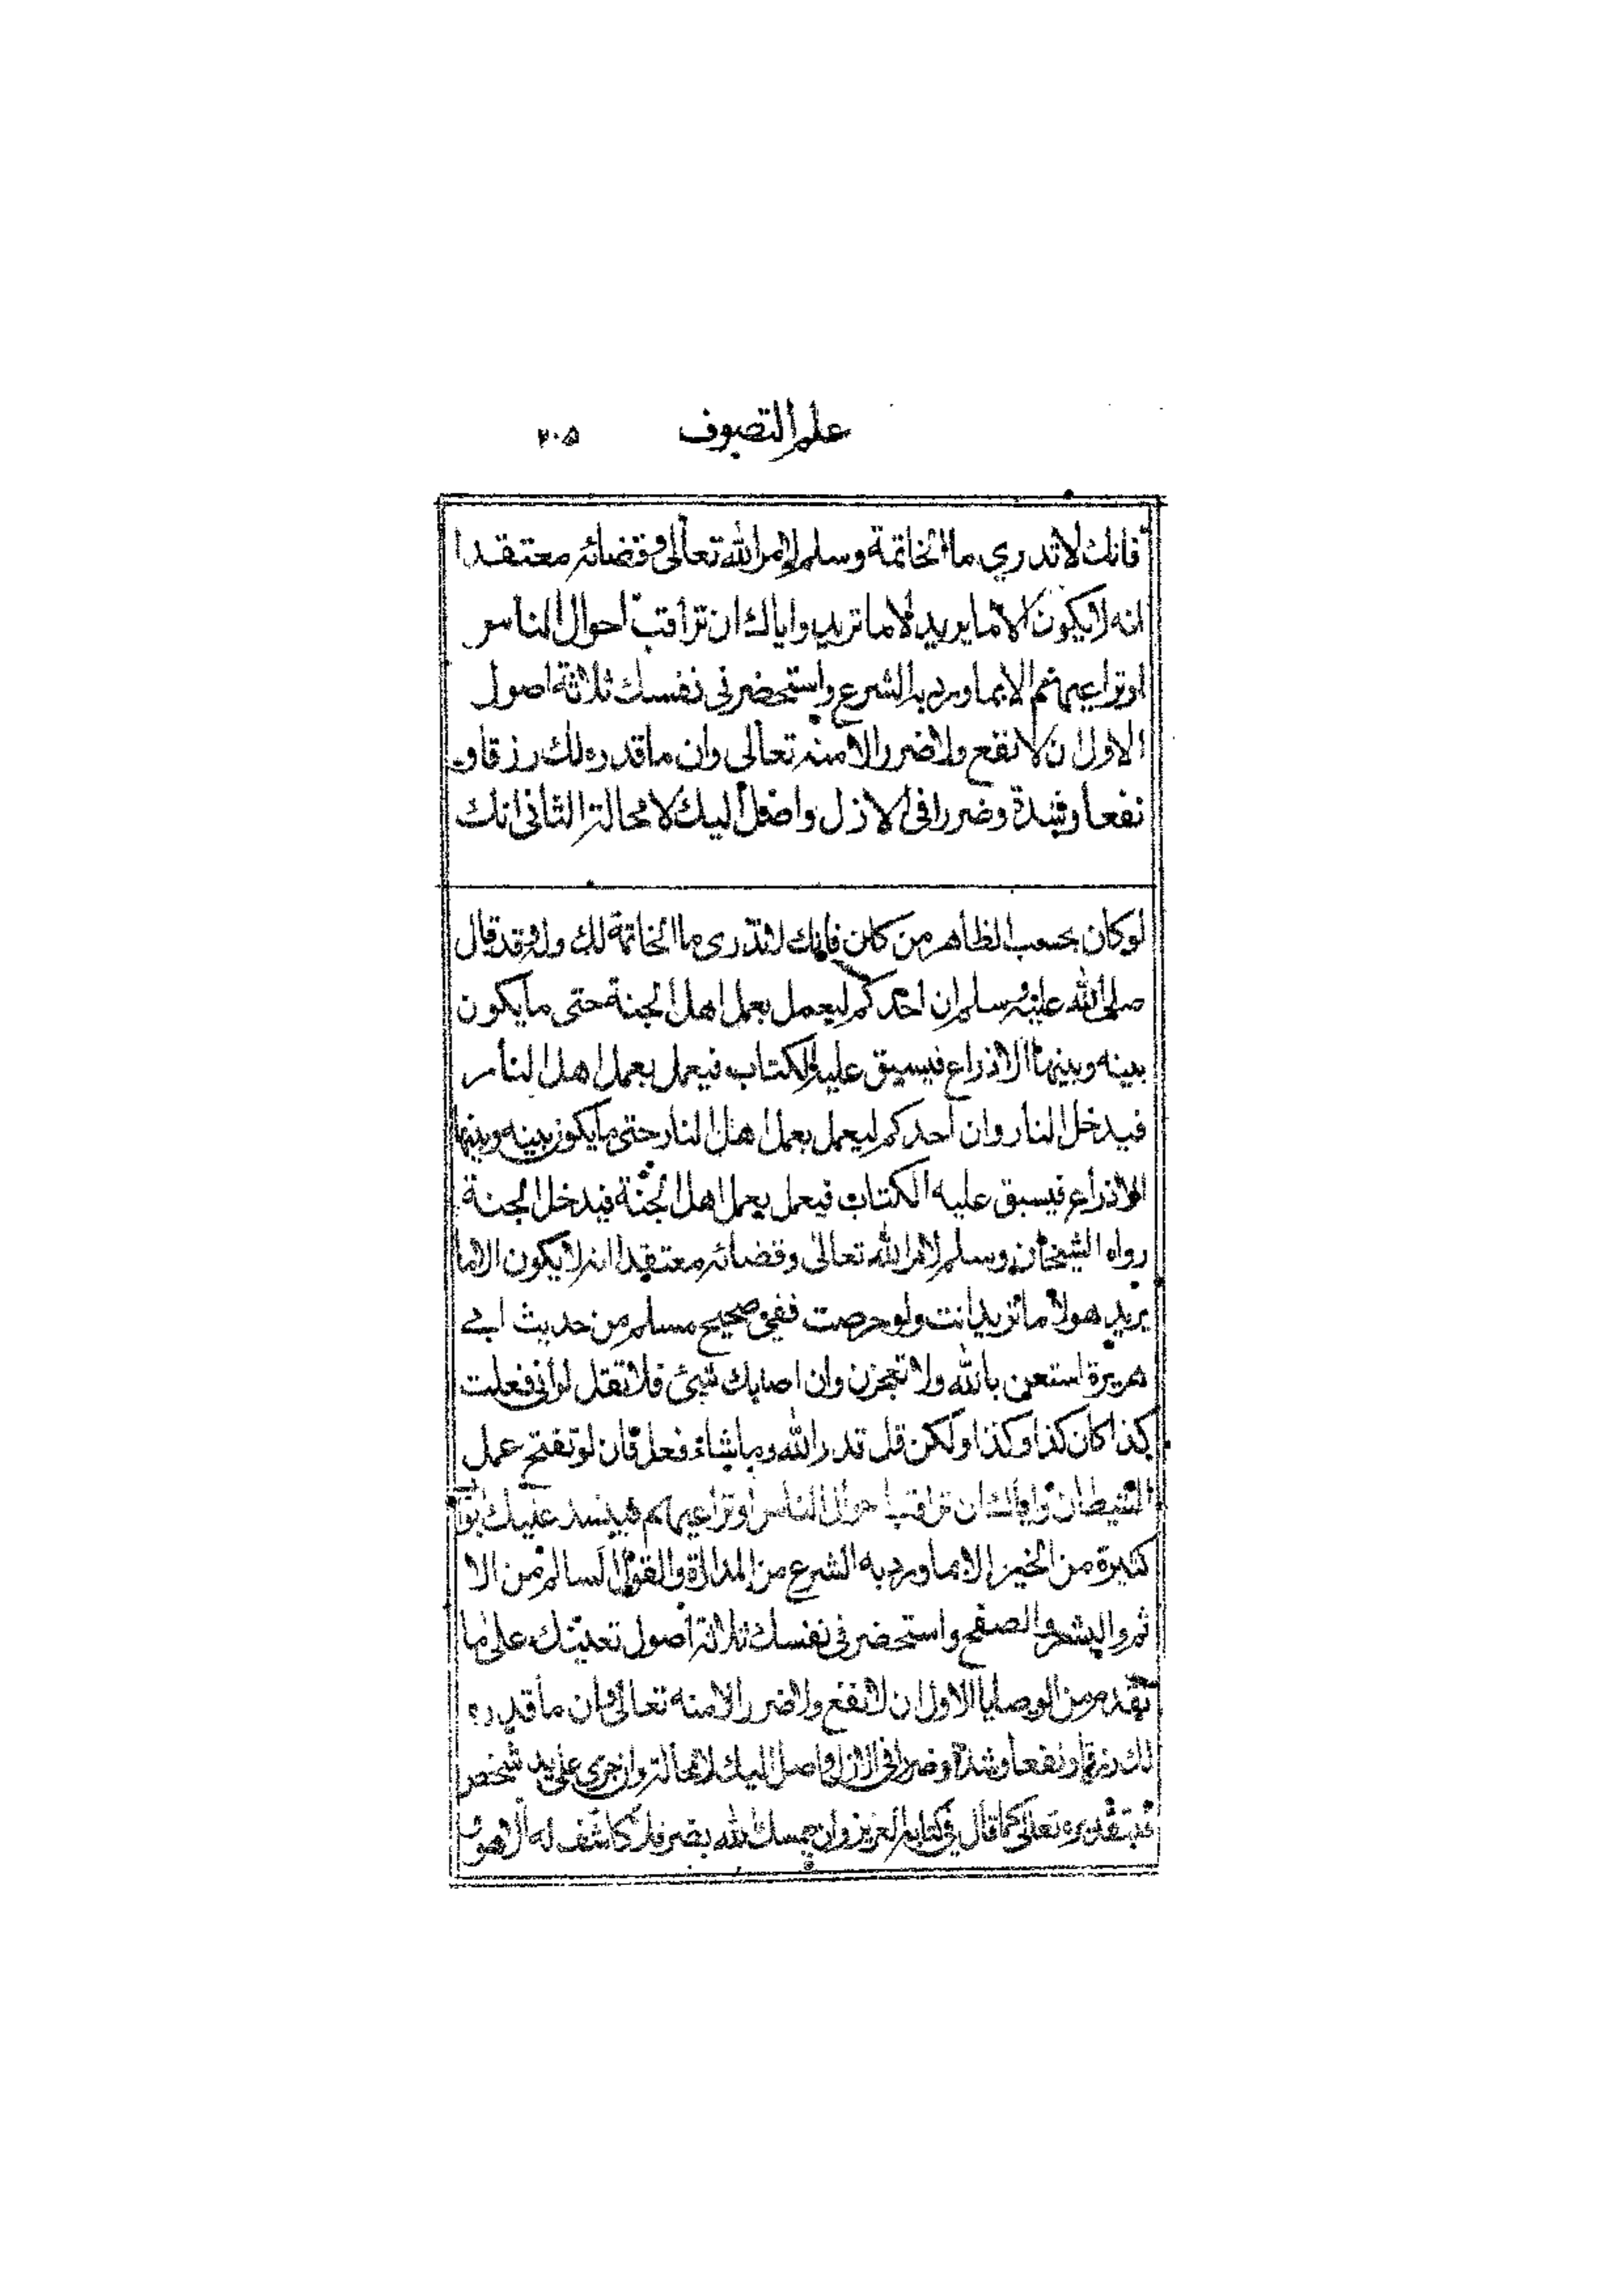 علم التصوف ٢٠٥
فانك لا تدري ما الخاتمة وسلم لامر الله تعالى وقضائه معتقدا
انه لا يكون الا ما يريد لا ما تريد واياك ان تراقب احوال الناس
او تراعيهم الا بما ورد به الشرع واستحضر في نفسك ثلاثة اصول
الاول ان لا نفع ولا ضرر الا منه تعالى وان ما قدره لك رزقا و
نفعا وشدة وضررا في الازل واصل اليك لا محالة الثاني انك
لو كان بحسب الظاهر من كان فانك لا تدرى ما الخاتمة لك وله قد قال
صلى الله عليه وسلم ان احدكم ليعمل بعمل اهل الجنة حتى ما يكون
بينه وبينها الا ذراع فيسبق عليه الكتاب فيعمل بعمل اهل النار
فيدخل النار وان احدكم ليعمل بعمل اهل النار حتى ما يكون بينه وبينها
الا ذراع فيسبق عليه الكتاب فيعمل بعمل اهل الجنة فيدخل الجنة
رواه الشيخان وسلم لامر الله تعالى وقضائه معتقدا انه لا يكون الا ما
يريد هو لا ما تريد انت ولو حرصت ففي صحيح مسلم من حديث ابي
هريرة استعن بالله ولا تعجزن وان اصابك شيئ فلا تقل لو اني فعلت
كذا كان كذا وكذا ولكن قل قدر الله وما شاء فعل فان لو تفتح عمل
الشيطان واياك ان تراقب احوال الناس او تراعيهم فيسد عليك ابوا
كثيرة من الخير الا بما ورد به الشرع من المداراة والقول السالم من الا
ثم والبشر والصفح واستحضر في نفسك ثلاثة اصول تعينك على ما
تقدم من الوصايا الاول ان لا نفع ولا ضرر الا منه تعالى وان ما قدره
لك رزقا ونفعا وشدة وضررا في الازل واصل اليك لا محالة وان جرى على يد شخص
فبتقديره تعالى كما قال في كتابه العزيز وان يمسسك الله بضر فلا كاشف له الا هو